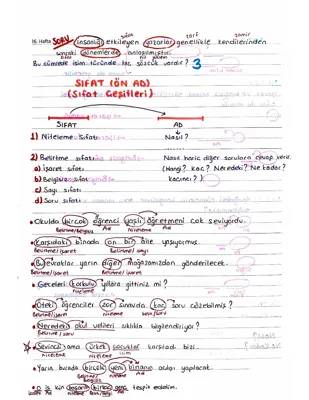 16. Hafta SORU insanlığı etkileyen yazarlar genellikle kendilerinden
sonraki dönemlerde anlaşılmıştır.
Bu cümlede isim türünde kaç sözcük vardır? 3
SIFAT (ÖN AD)
(Sıfat Çeşitleri)
SIFAT AD
1) Niteleme Sıfatı Nasıl?
2) Belirtme sıfatı Nasıl hariç diğer sorulara cevap verir.
a) İşaret sıfatı (Hangi? Kaç? Neredeki? Ne kadar?
b) Belgisiz sıfat kaçıncı?)
c) Sayı sıfatı
d) Soru sıfatı
Okulda birçok öğrenci yaşlı öğretmeni çok seviyordu.
Belirtme/Belgisiz Ad Niteleme Ad
Karşıdaki binada on bir aile yaşıyormuş.
Belirtme/işaret Belirtme/sayı
Bu evraklar yarın diğer mağazamızdan gönderilecek.
Belirtme/işaret Belirtme/işaret
Geceleri korkulu yollara gittiniz mi?
niteleme
Öteki öğrenciler zor sınavda kaç soru çözebilmiş?
Belirtme/işaret niteleme
Neredeki okul velileri sıklıkla bilgilendiriyor?
Belirtme/soru
Sevincli ama ürkek çocuklar karşıladı bizi.
niteleme niteleme Ad
Yarın burada birçok yeni binanın açılışı yapılacak.
Belirtme/Belgisiz niteleme Ad
O iş için başarılı birkaç genç tespit edelim.